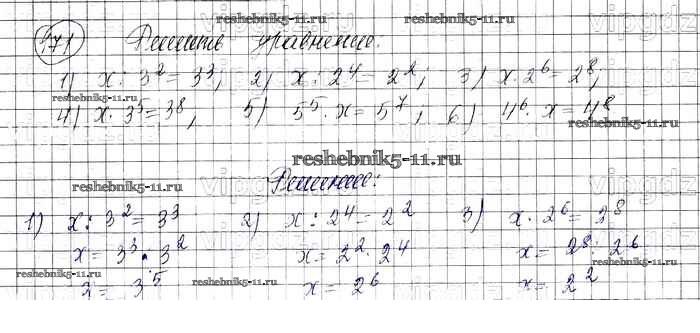 reshebnik5-11.ru
171 Решить уравнение:
1) x : 3² = 3³, 2) x : 2⁴ = 2², 3) x · 2⁶ = 2⁸,
reshebnik5-11.ru
4) x · 3⁵ = 3⁸, 5) 5⁵ · x = 5⁷, 6) 4⁶ · x = 4⁸
reshebnik5-11.ru
reshebnik5-11.ru
reshebnik5-11.ru
Решение:
1) x : 3² = 3³ 2) x : 2⁴ = 2² 3) x · 2⁶ = 2⁸
x = 3³ · 3² x = 2² · 2⁴ x = 2⁸ : 2⁶
reshebnik5-11.ru reshebnik5-11.ru reshebnik5-11.ru
x = 3⁵ x = 2⁶ x = 2²
vipgdz